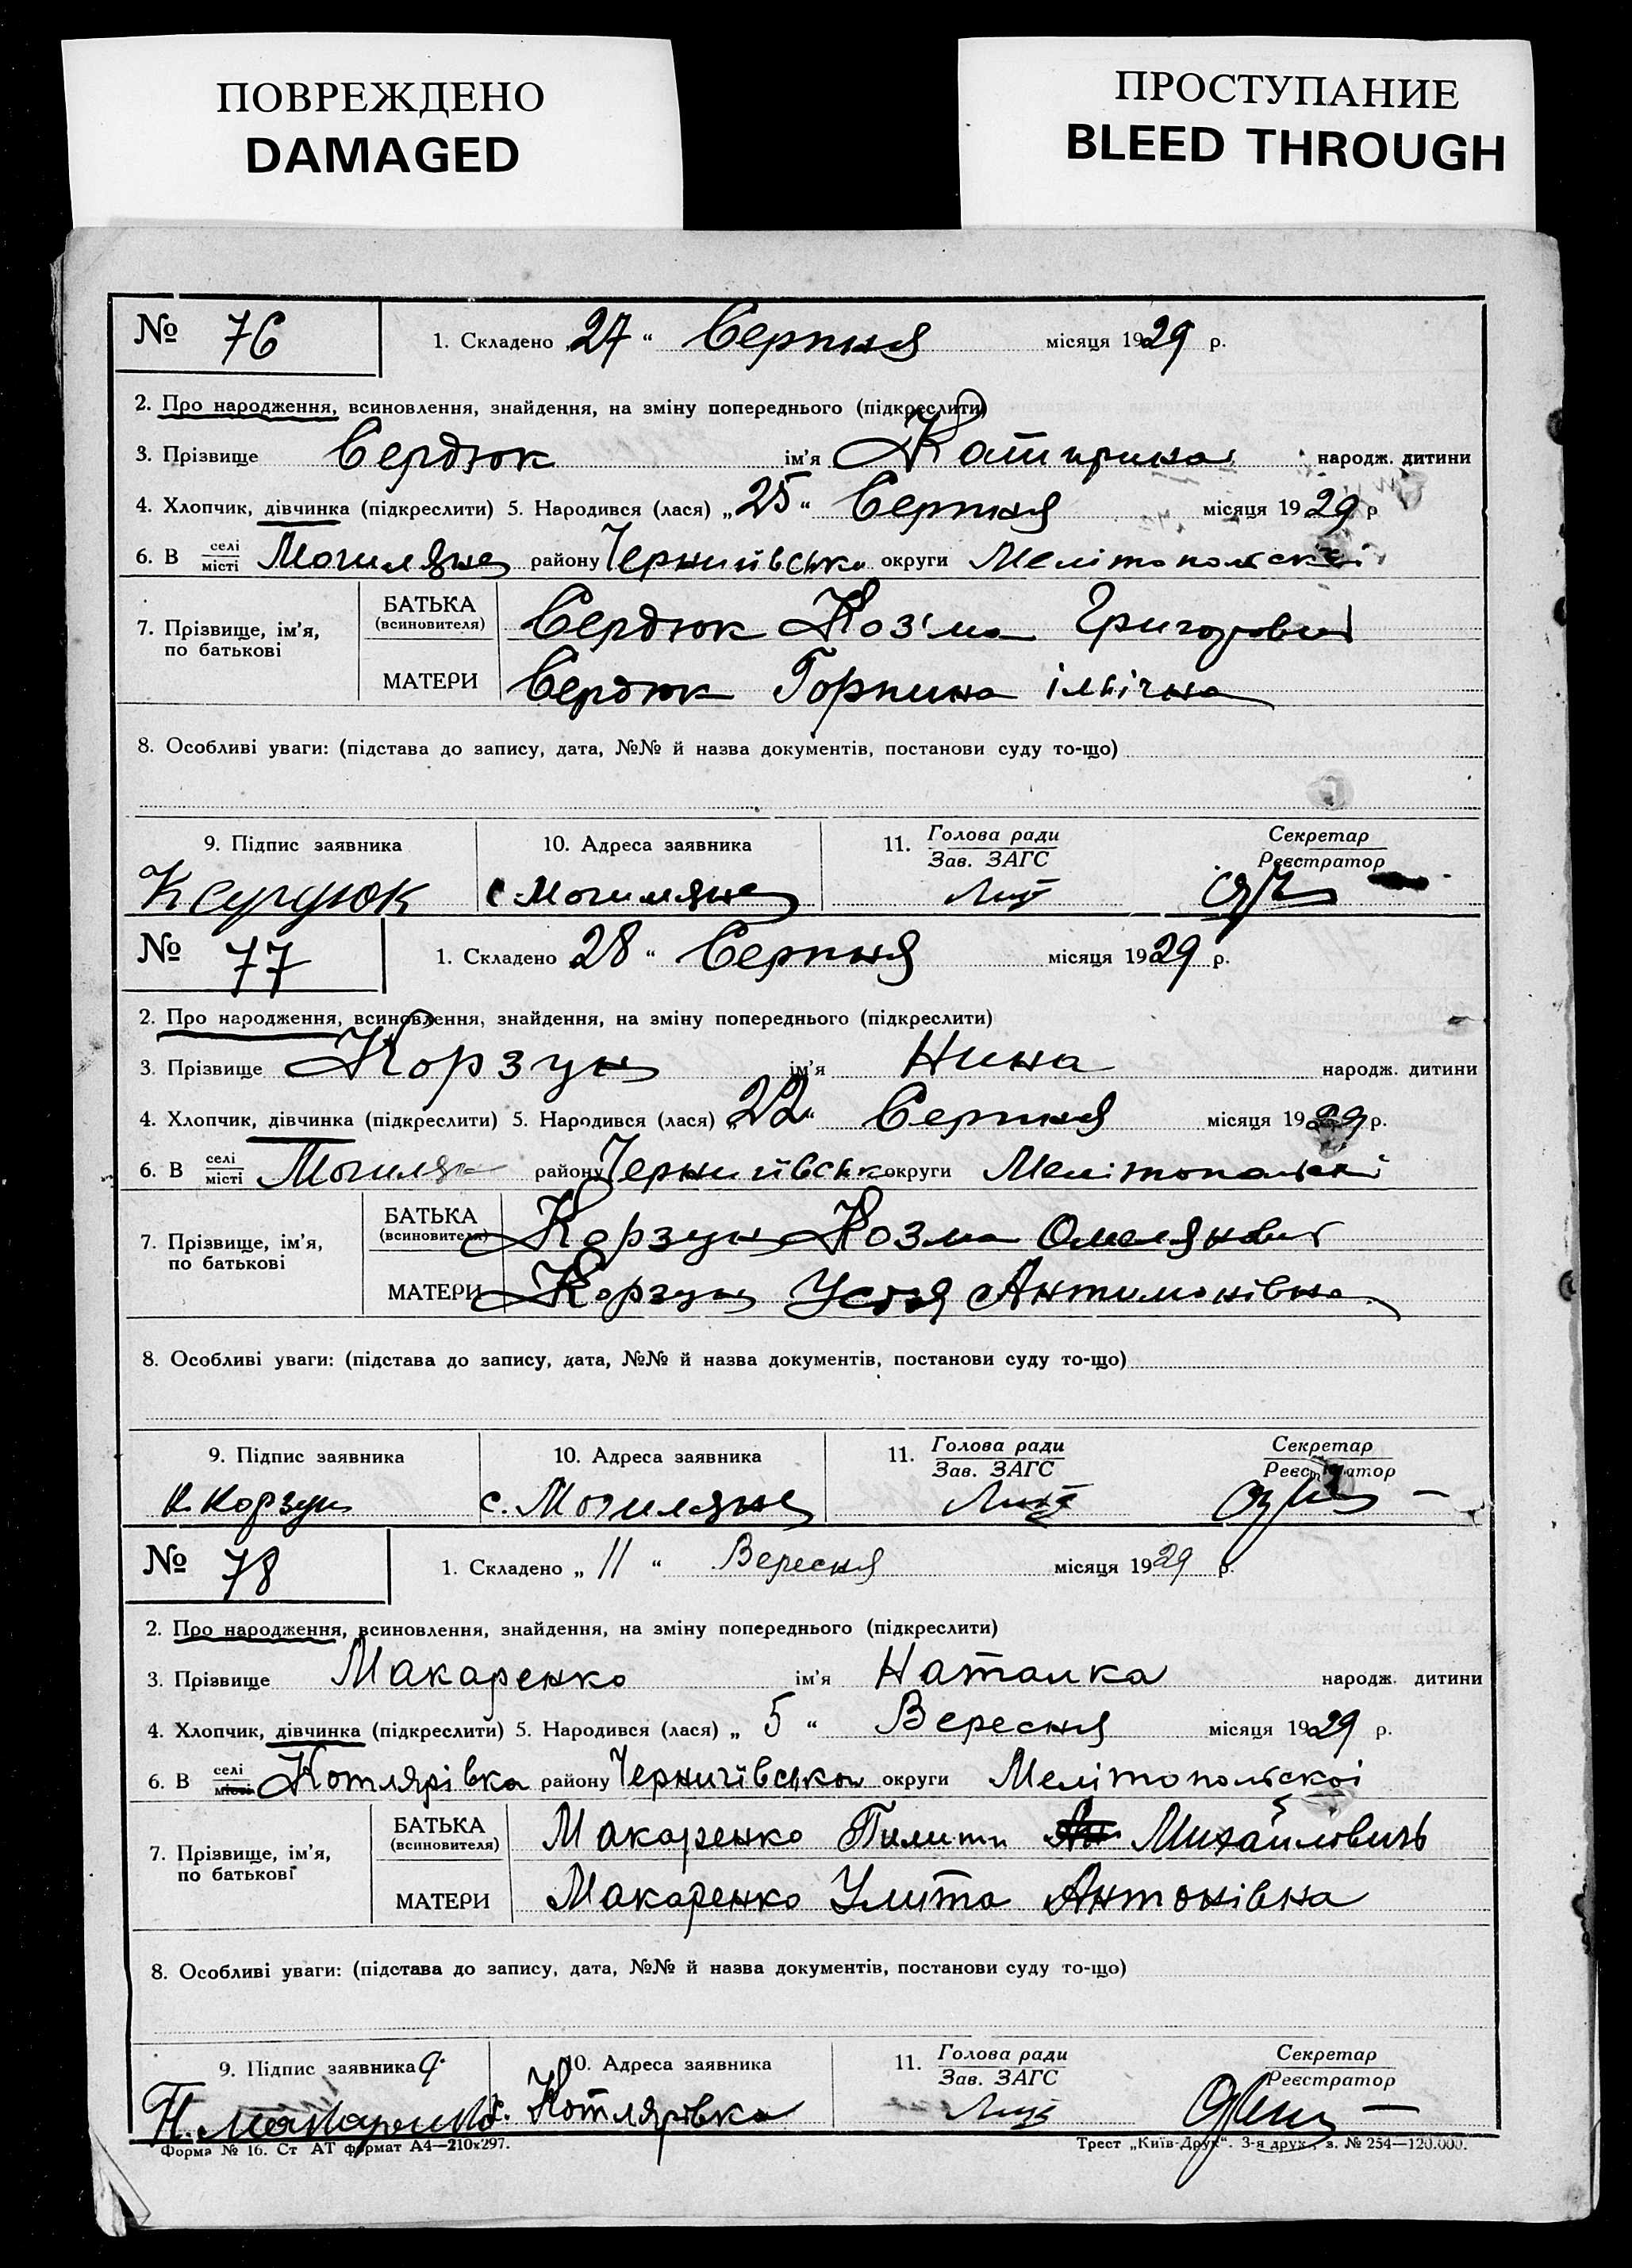 ПОВРЕЖДЕНО
DAMAGED
ПРОСТУПАНИЕ
BLEED THROUGH
№ 76 1. Складено 27 “ Серпня місяця 1929 р.
2. Про народження, всиновлення, знайдення, на зміну попереднього (підкреслити)
3. Прізвище Сердюк ім'я Катирина народж. дитини
4. Хлопчик, дівчинка (підкреслити) 5. Народився (лася) „ 25 “ Серпня місяця 1929 р
6. В селі місті Могиляне району Чернигівськи округи Мелітопольскі
7. Прізвище, ім'я, по батькові
БАТЬКА (всиновителя) Сердюк Коз'ма Григорович
МАТЕРИ Сердюк Горпина ілнічна
8. Особливі уваги: (підстава до запису, дата, №№ й назва документів, постанови суду то-що)
9. Підпис заявника 10. Адреса заявника 11. Голова ради Зав. ЗАГС Секретар Реєстратор
К Сердюк с Могиляне
№ 77 1. Складено 28 “ Серпня місяця 1929 р.
2. Про народження, всиновлення, знайдення, на зміну попереднього (підкреслити)
3. Прізвище Корзун ім'я Нина народж. дитини
4. Хлопчик, дівчинка (підкреслити) 5. Народився (лася) „ 22 “ Серпня місяця 1929 р.
6. В селі місті Могиляне району Чернигівськ округи Мелітопольскі
7. Прізвище, ім'я, по батькові
БАТЬКА (всиновителя) Корзун Козма Омелянович
МАТЕРИ Корзун Устя Антимонівна
8. Особливі уваги: (підстава до запису, дата, №№ й назва документів, постанови суду то-що)
9. Підпис заявника 10. Адреса заявника 11. Голова ради Зав. ЗАГС Секретар Реєстратор
К. Корзун с. Могиляне
№ 78 1. Складено „ 11 “ Вересня місяця 1929 р.
2. Про народження, всиновлення, знайдення, на зміну попереднього (підкреслити)
3. Прізвище Макаренко ім'я Наталка народж. дитини
4. Хлопчик, дівчинка (підкреслити) 5. Народився (лася) „ 5 “ Вересня місяця 1929 р.
6. В селі місті Котлярівка району Чернигівської округи Мелітопольскої
7. Прізвище, ім'я, по батькові
БАТЬКА (всиновителя) Макаренко Пилип Михайловичь
МАТЕРИ Макаренко Улита Антонівна
8. Особливі уваги: (підстава до запису, дата, №№ й назва документів, постанови суду то-що)
9. Підпис заявника 10. Адреса заявника 11. Голова ради Зав. ЗАГС Секретар Реєстратор
П. Макаренко с. Котлярівка
Форма № 16. Ст АТ формат А4—210x297. Трест „Київ-Друк“. 3-я друк., з. № 254—120.000.